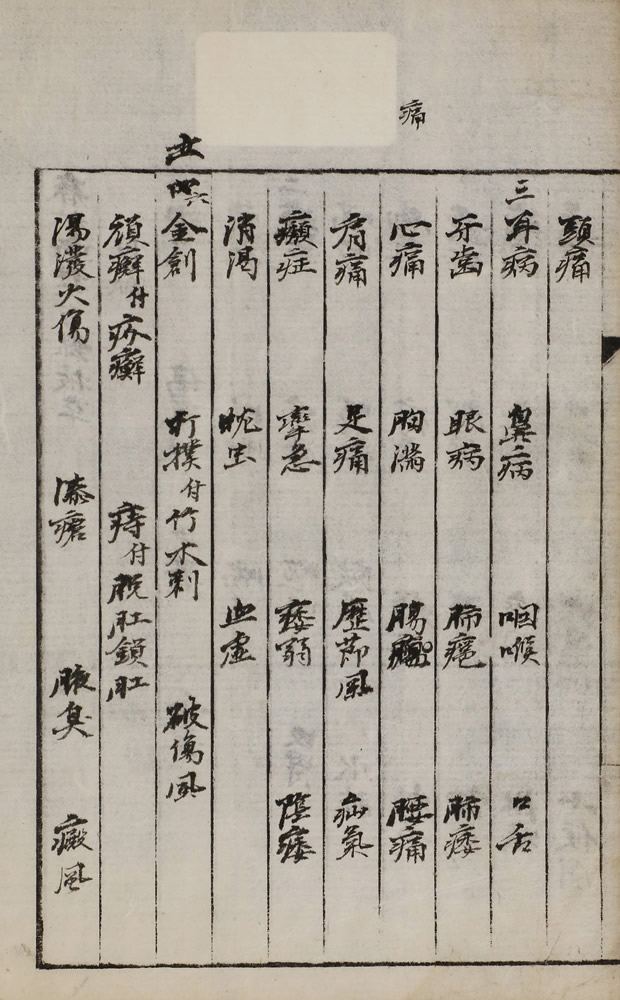 痛
頭痛
三 耳病 鼻病 咽喉 口舌
牙齒 眼病 肺癰 肺痿
心痛 胸滿 腰痛
背痛 足痛 歷節風 疝氣
癩症 攣急 痿弱 陰痿
消渴 虫 血虛
金創 打撲付竹木刺 破傷風
頑癬付疥癬 痔付脫肛鎖肛
湯潑火傷 漆瘡 腋臭 癜風